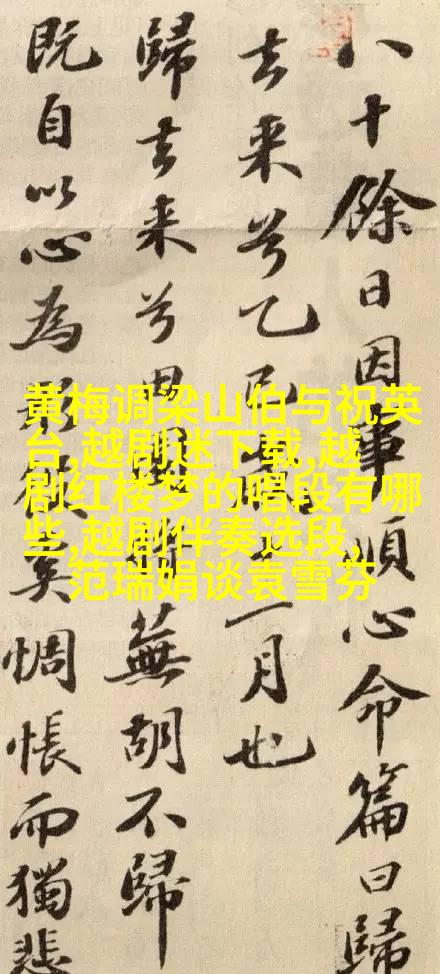 八十餘日因事順心命篇曰歸
去来兮乙巳歲一月也
歸去来兮田園将蕪胡不歸
既自以心為形役奚惆悵而獨悲
黄梅调梁山伯与祝英
台,越剧迷下载,越
剧红楼梦的唱段有哪
些,越剧伴奏选段,
范瑞娟谈袁雪芬